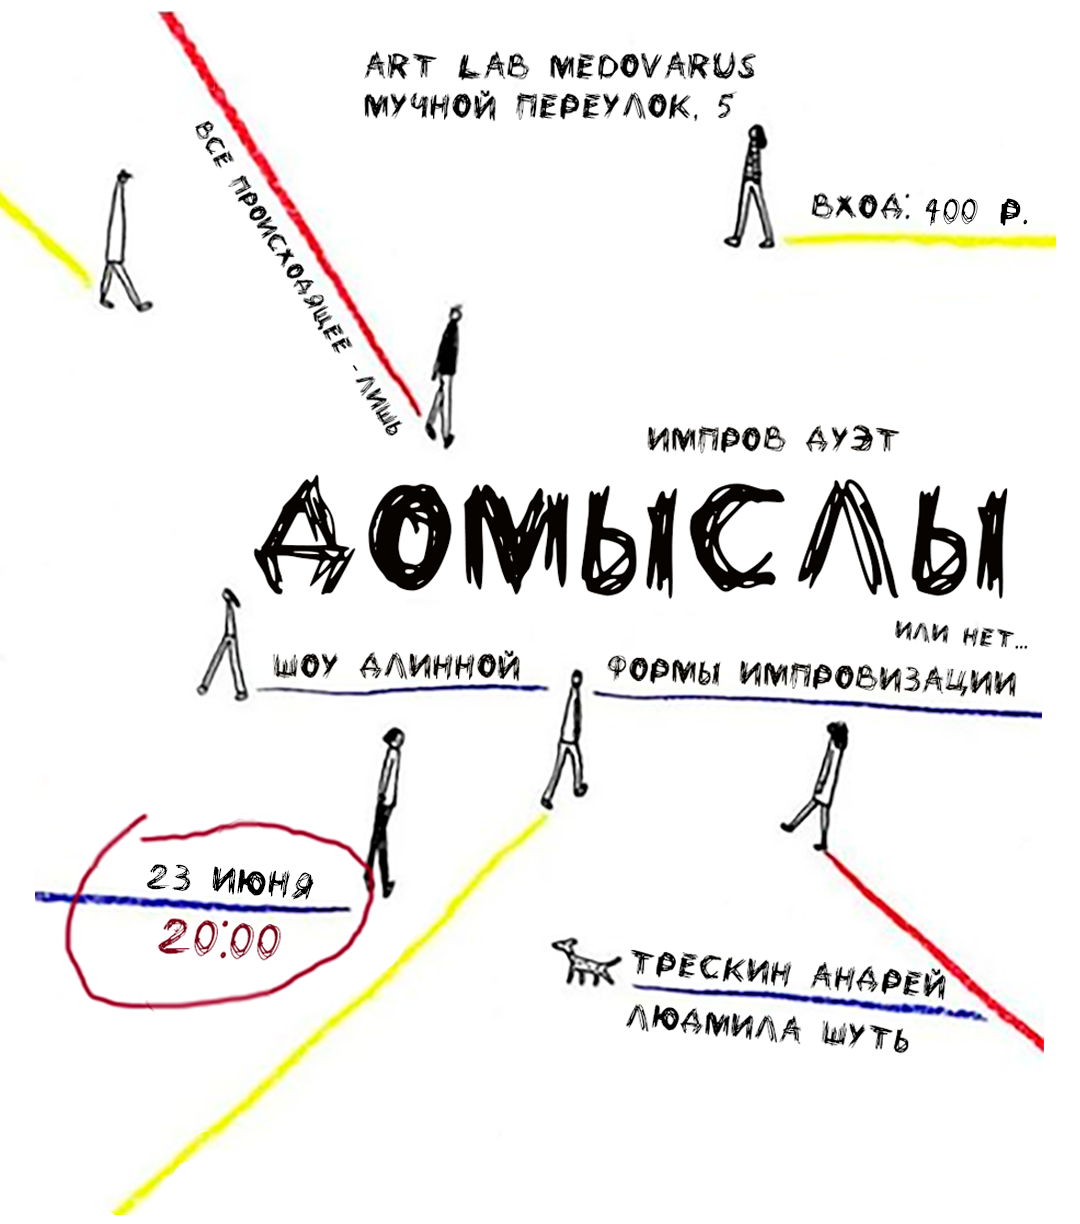 ART LAB MEDOVARUS
МУЧНОЙ ПЕРЕУЛОК, 5
ВХОД: 400 Р.
ВСЕ ПРОИСХОДЯЩЕЕ - ЛИШЬ
ИМПРОВ ДУЭТ
ДОМЫСЛЫ
ИЛИ НЕТ...
ШОУ ДЛИННОЙ ФОРМЫ ИМПРОВИЗАЦИИ
23 ИЮНЯ
20:00
ТРЕСКИН АНДРЕЙ
ЛЮДМИЛА ШУТЬ